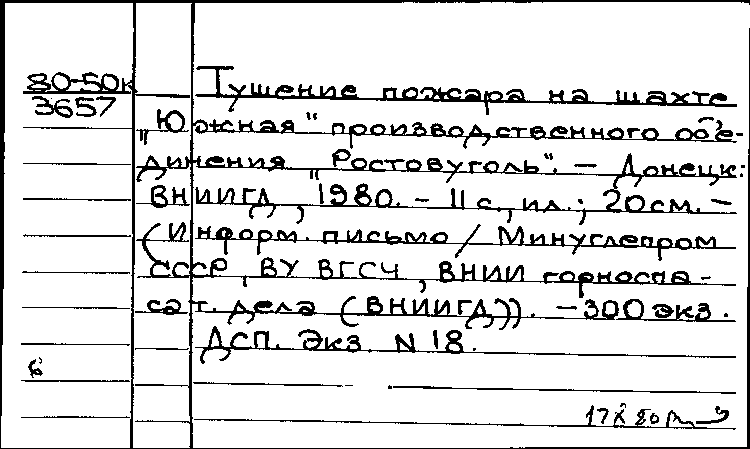 80-50к
3657
Тушение пожара на шахте
„Южная" производственного объе-
динения „Ростовуголь". — Донецк:
ВНИИГД, 1980. — 11 с., ил.; 20 см. —
(Информ. письмо / Минуглепром
СССР, ВУ ВГСЧ, ВНИИ горноспа-
сат. дела (ВНИИГД)). — 300 экз.
ДСП. Экз. N 18.
б
17 X 80